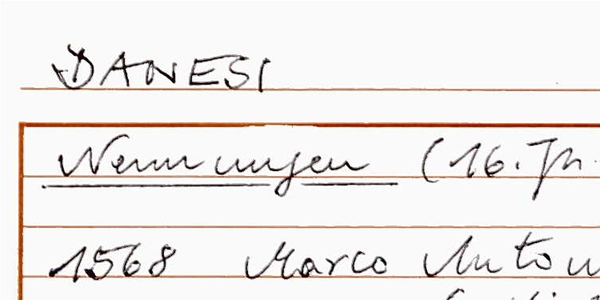 DANESI
Nennungen (16. Jh.
1568 Marco Anton